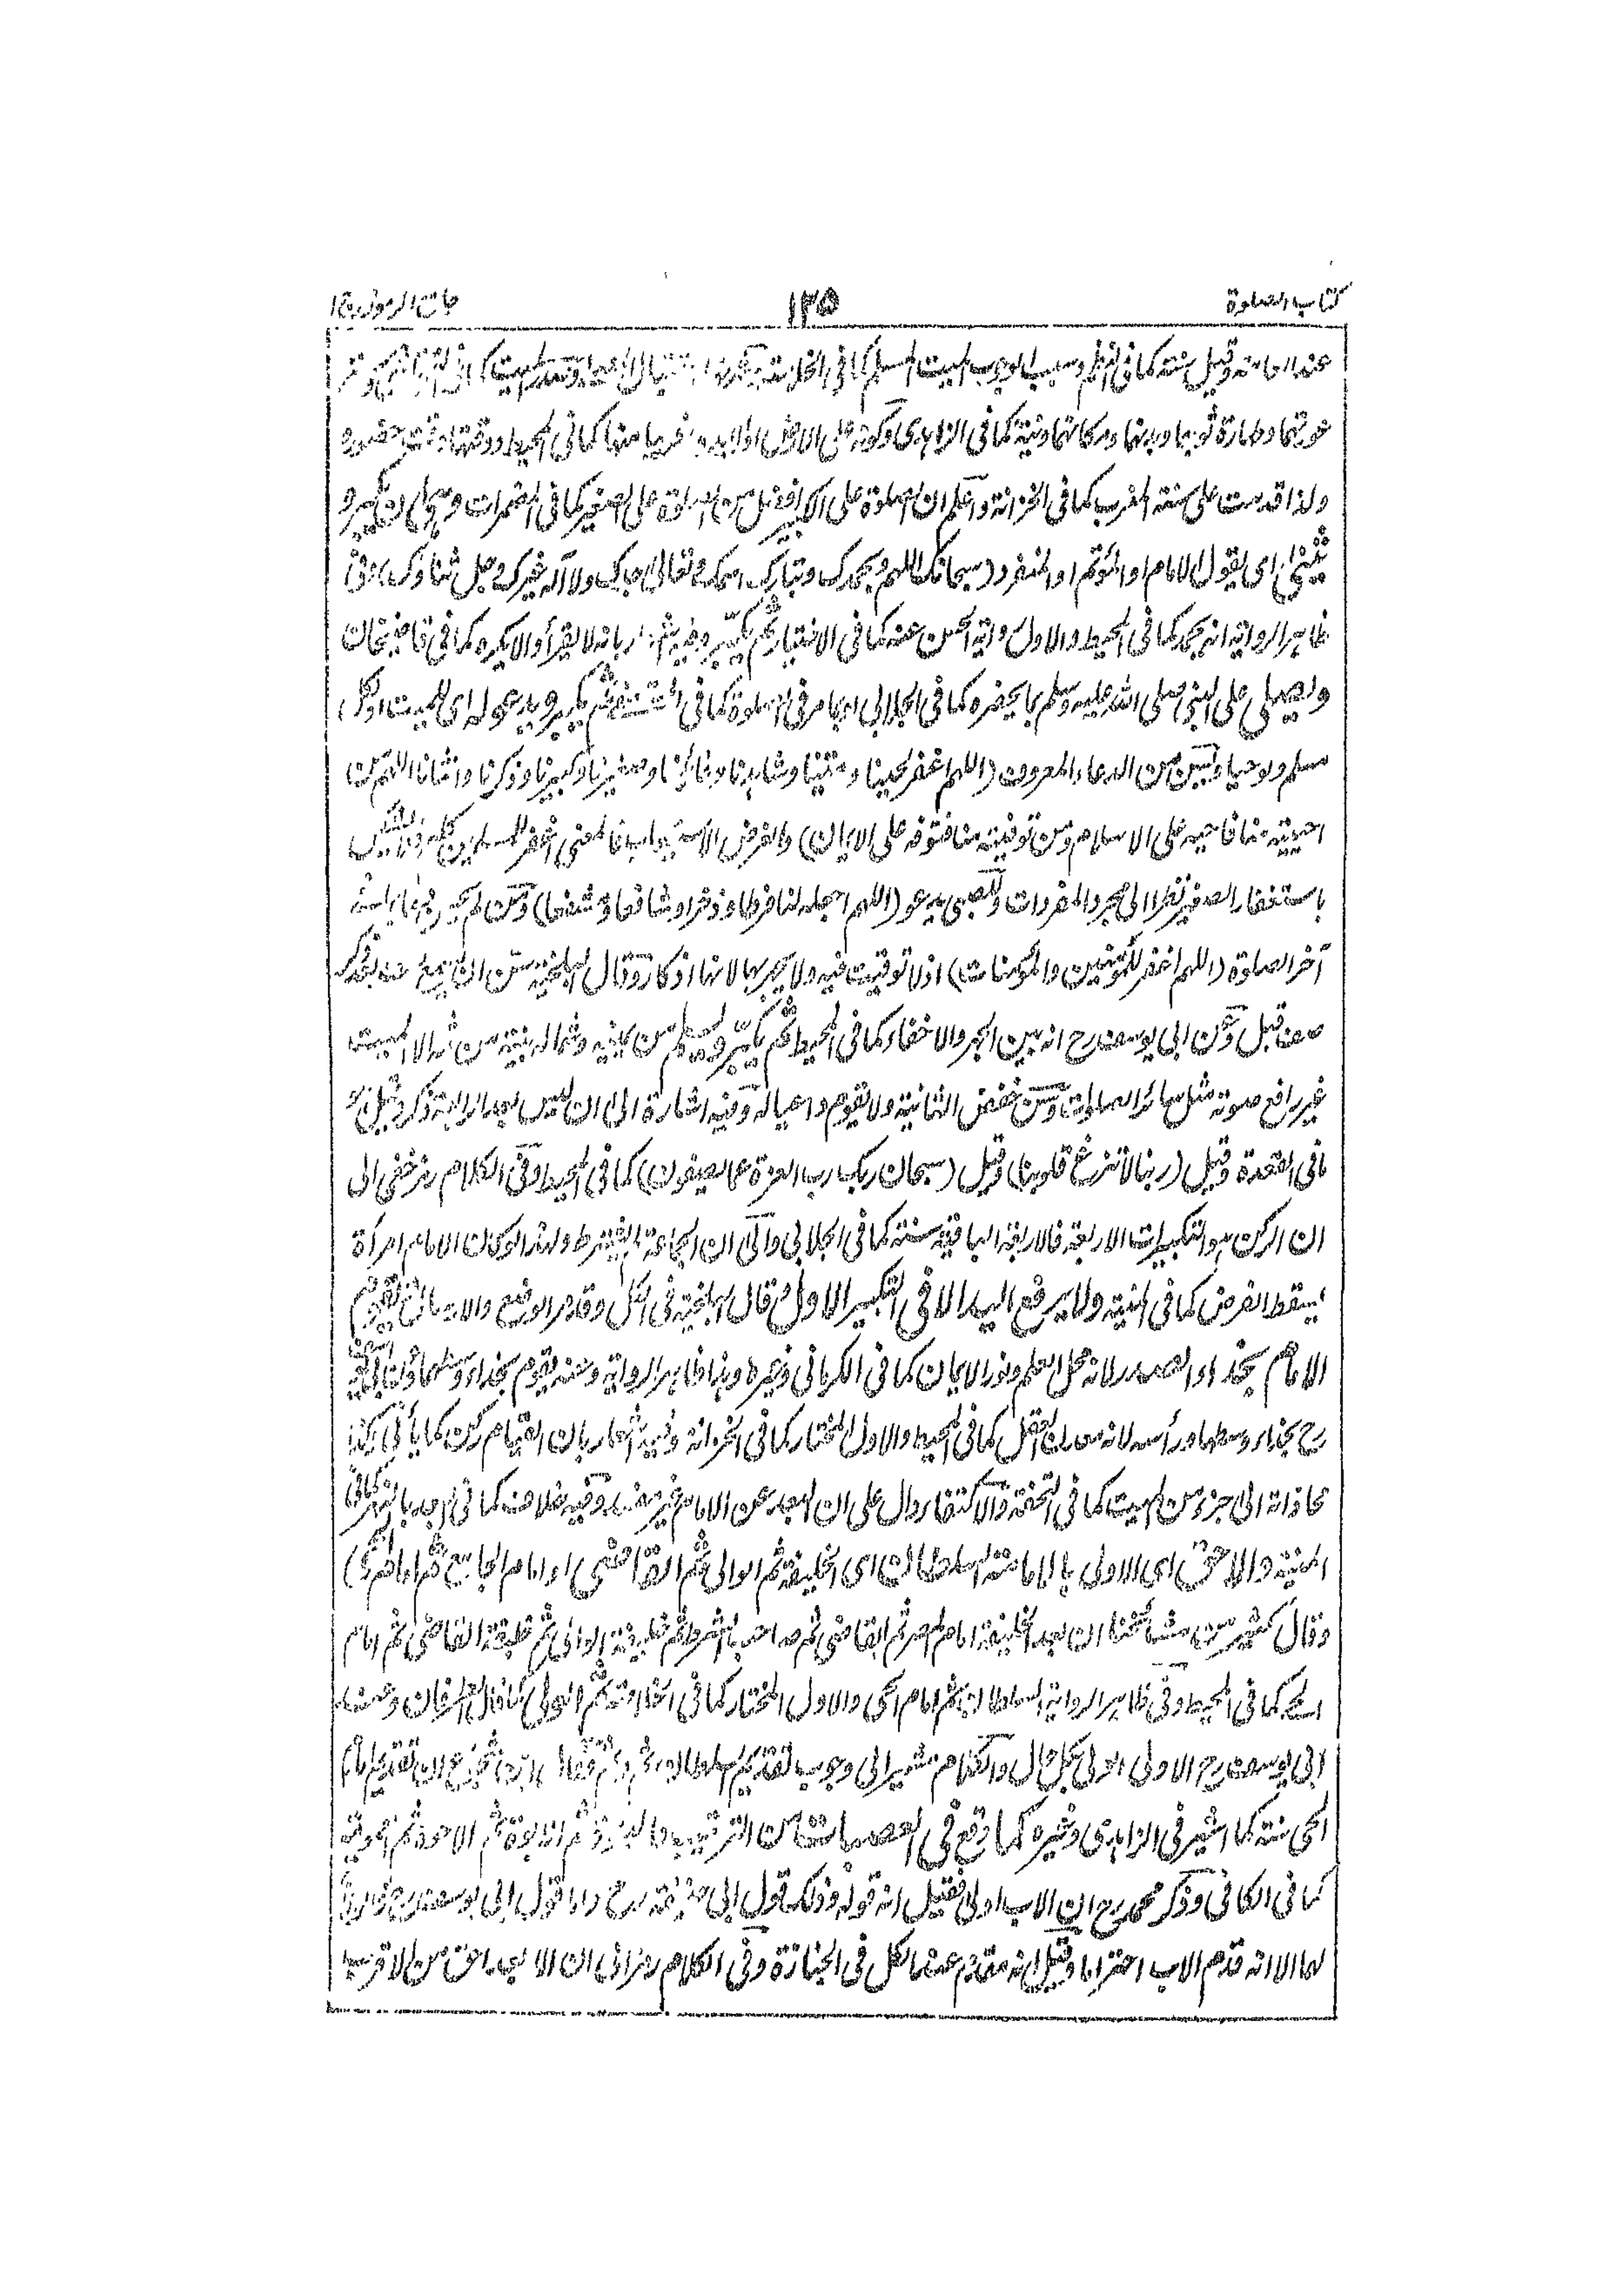 كتاب الصلوة
١٢٥
جامع الرموز ج ١
عند العامة وقيل سنة كما في النظم وسبب الوجوب الميت المسلم كما في الخلاصة
عورتها وطهارة ثوبها وبدنها ومكانها ونية كما في الزاهدي وكونه على الارض او الايدي قريبا منها كما في المحيط ووقتها وقت حضوره
ولذا قدمت على سنة المغرب كما في الخزانة واعلم ان الصلوة على الكبير افضل من الصلوة على الصغير كما في المضمرات وهي ان يكبر و
يثني اى يقول الامام او المؤتم او المنفرد (سبحانك اللهم وبحمدك وتبارك اسمك وتعالى جدك ولا اله غيرك وجل ثناؤك) وفي
ظاهر الرواية انه يحمد كما في المحيط والاول رواية الحسن عنه كما في الاختيار ثم يكبر وفيه اشعار بانه لا يقرأ والا يكره كما في قاضيخان
ويصلى على النبي صلى الله عليه وسلم بما يحضره كما في الجلابي او بما مر في الصلوة كما في ثم يكبر ويدعو له اى للميت او لكل
مسلم ولو حيا وسن من الدعاء المعروف (اللهم اغفر لحينا وميتنا وشاهدنا وغائبنا وصغيرنا وكبيرنا وذكرنا وانثانا اللهم من
احييته منا فاحيه على الاسلام ومن توفيته منا فتوفه على الايمان) والغرض الاستيعاب فالمعنى اغفر للمسلمين كلهم
باستغفار الصغير نظرا الى مجرد المفردات وللصبي يدعو (اللهم اجعله لنا فرطا وذخرا وشافعا ومشفعا) ومن لم يحسن
آخر الصلوة (اللهم اغفر للمؤمنين والمؤمنات) اذ لا توقيت فيه ولا يجهر بها لانها اذكار وقال البلخية سن ان يسمع
صف قبل وعن ابي يوسف رح انه بين الجهر والاخفاء كما في المحيط ثم يكبر ويسلم من يمينه وشماله بنية من ثمه الا الميت
غير رافع صوته مثل سائر الصلوات وسن خفض الثانية ولا يقوم داعيا له وفيه اشارة الى ان ليس بعد الرابعة ذكر وقيل
ما في القعدة وقيل (ربنا لا تزغ قلوبنا) وقيل (سبحان ربك رب العزة عما يصفون) كما في المحيط وفي الكلام رمز خفي الى
ان الركن هو التكبيرات الاربعة فالاربعة الباقية سنة كما في الجلابي والى ان الجماعة لم يشترط ولهذا لو كان الامام امرأة
يسقط الفرض كما في المنية ولا يرفع اليد الا في التكبير الاول وقال البلخية في الكل وقد مر الرفع والارسال ويقوم
الامام بحذاء الصدر لانه محل العلم ونور الايمان كما في الكرماني وغيره وهذا ظاهر الرواية وعنه يقوم بحذاء وسطها وعن ابي
رح بحذاء وسطها ورأسه لانه معدن العقل كما في المحيط والاول المختار كما في الخزانة وفيه اشعار بان القيام ركن كما يأتي
محاذاته الى جزء من الميت كما في التحفة والاكتفاء دال على ان البعد عن الامام غير مفسد وفيه خلاف كما في
المنية والاحق اى الاولى بالامامة السلطان اى الخليفة ثم الوالي ثم القاضي او امام الجامع ثم امام الحى)
وقال كثير من مشائخنا ان بعد الخليفة امام المصر ثم القاضي ثم صاحب الشرط ثم خليفة الوالي ثم خليفة القاضي ثم امام
الحى كما في المحيط وفي ظاهر الرواية السلطان ثم امام الحى والاول المختار كما في ثم الولى كما قال الطرفان وعند
ابي يوسف رح الاولى الولى بكل حال والكلام مشير الى وجوب تقديم السلطان ان تقديم امام
الحى سنة كما اشير في الزاهدي وغيره كما وقع في العصبات من الترتيب فالبنوة ثم الابوة ثم الاخوة ثم العمومة
كما في الكافي وذكر محمد رح ان الاب اولى فقيل انه قوله وذلك قول ابي حنيفة رح واما قول ابي يوسف رح
لها الا انه قدم الاب احتراما وقيل انه مقدم عند الكل في الجنازة وفي الكلام رمز الى ان الابعد احق من الاقرب